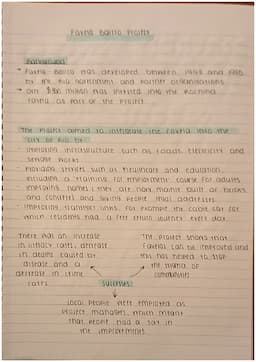 Favela Bairro Project
Background
- Favela Bairro was developed between 1994 and 2008
by
- Over $300 million was invested into the Rocinha
favela as part of the project
The project aimed to integrate the favela into the
city of Rio by:
- improving infrastructure such as roads, electricity and
sewage works
- Providing services such as healthcare and education,
including a training for employment course for adults
- improving homes; they are now mainly built of bricks
and concrete and giving people mail addresses
- improving transport links. For example the cable car for
which residents had a free return journey every day.
There was an increase
in literacy rates, decrease
in deaths caused by
disease and a
decrease in crime
rates
The project shows that
favelas can be improved and
this has helped to stop
the stigma of
communities
successes
Local people were employed as
project managers, which meant
that people had a say in
the improvements